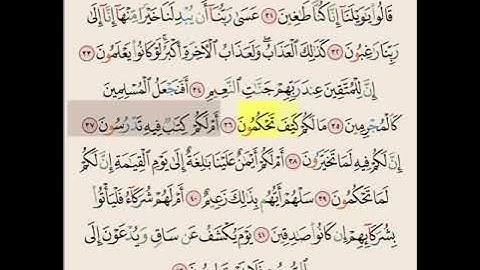 قَالُوا۟ يَـٰوَيْلَنَآ إِنَّا كُنَّا طَـٰغِينَ ٣١ عَسَىٰ رَبُّنَآ أَن يُبْدِلَنَا خَيْرًا مِّنْهَآ إِنَّآ إِلَىٰ
رَبِّنَا رَٰغِبُونَ ٣٢ كَذَٰلِكَ ٱلْعَذَابُ ۖ وَلَعَذَابُ ٱلْـَٔاخِرَةِ أَكْبَرُ ۚ لَوْ كَانُوا۟ يَعْلَمُونَ ٣٣
إِنَّ لِلْمُتَّقِينَ عِندَ رَبِّهِمْ جَنَّـٰتِ ٱلنَّعِيمِ ٣٤ أَفَنَجْعَلُ ٱلْمُسْلِمِينَ
كَٱلْمُجْرِمِينَ ٣٥ مَا لَكُمْ كَيْفَ تَحْكُمُونَ ٣٦ أَمْ لَكُمْ كِتَـٰبٌ فِيهِ تَدْرُسُونَ ٣٧
إِنَّ لَكُمْ فِيهِ لَمَا تَخَيَّرُونَ ٣٨ أَمْ لَكُمْ أَيْمَـٰنٌ عَلَيْنَا بَـٰلِغَةٌ إِلَىٰ يَوْمِ ٱلْقِيَـٰمَةِ ۙ إِنَّ لَكُمْ
لَمَا تَحْكُمُونَ ٣٩ سَلْهُمْ أَيُّهُم بِذَٰلِكَ زَعِيمٌ ٤٠ أَمْ لَهُمْ شُرَكَآءُ فَلْيَأْتُوا۟
بِشُرَكَآئِهِمْ إِن كَانُوا۟ صَـٰدِقِينَ ٤١ يَوْمَ يُكْشَفُ عَن سَاقٍ وَيُدْعَوْنَ إِلَى